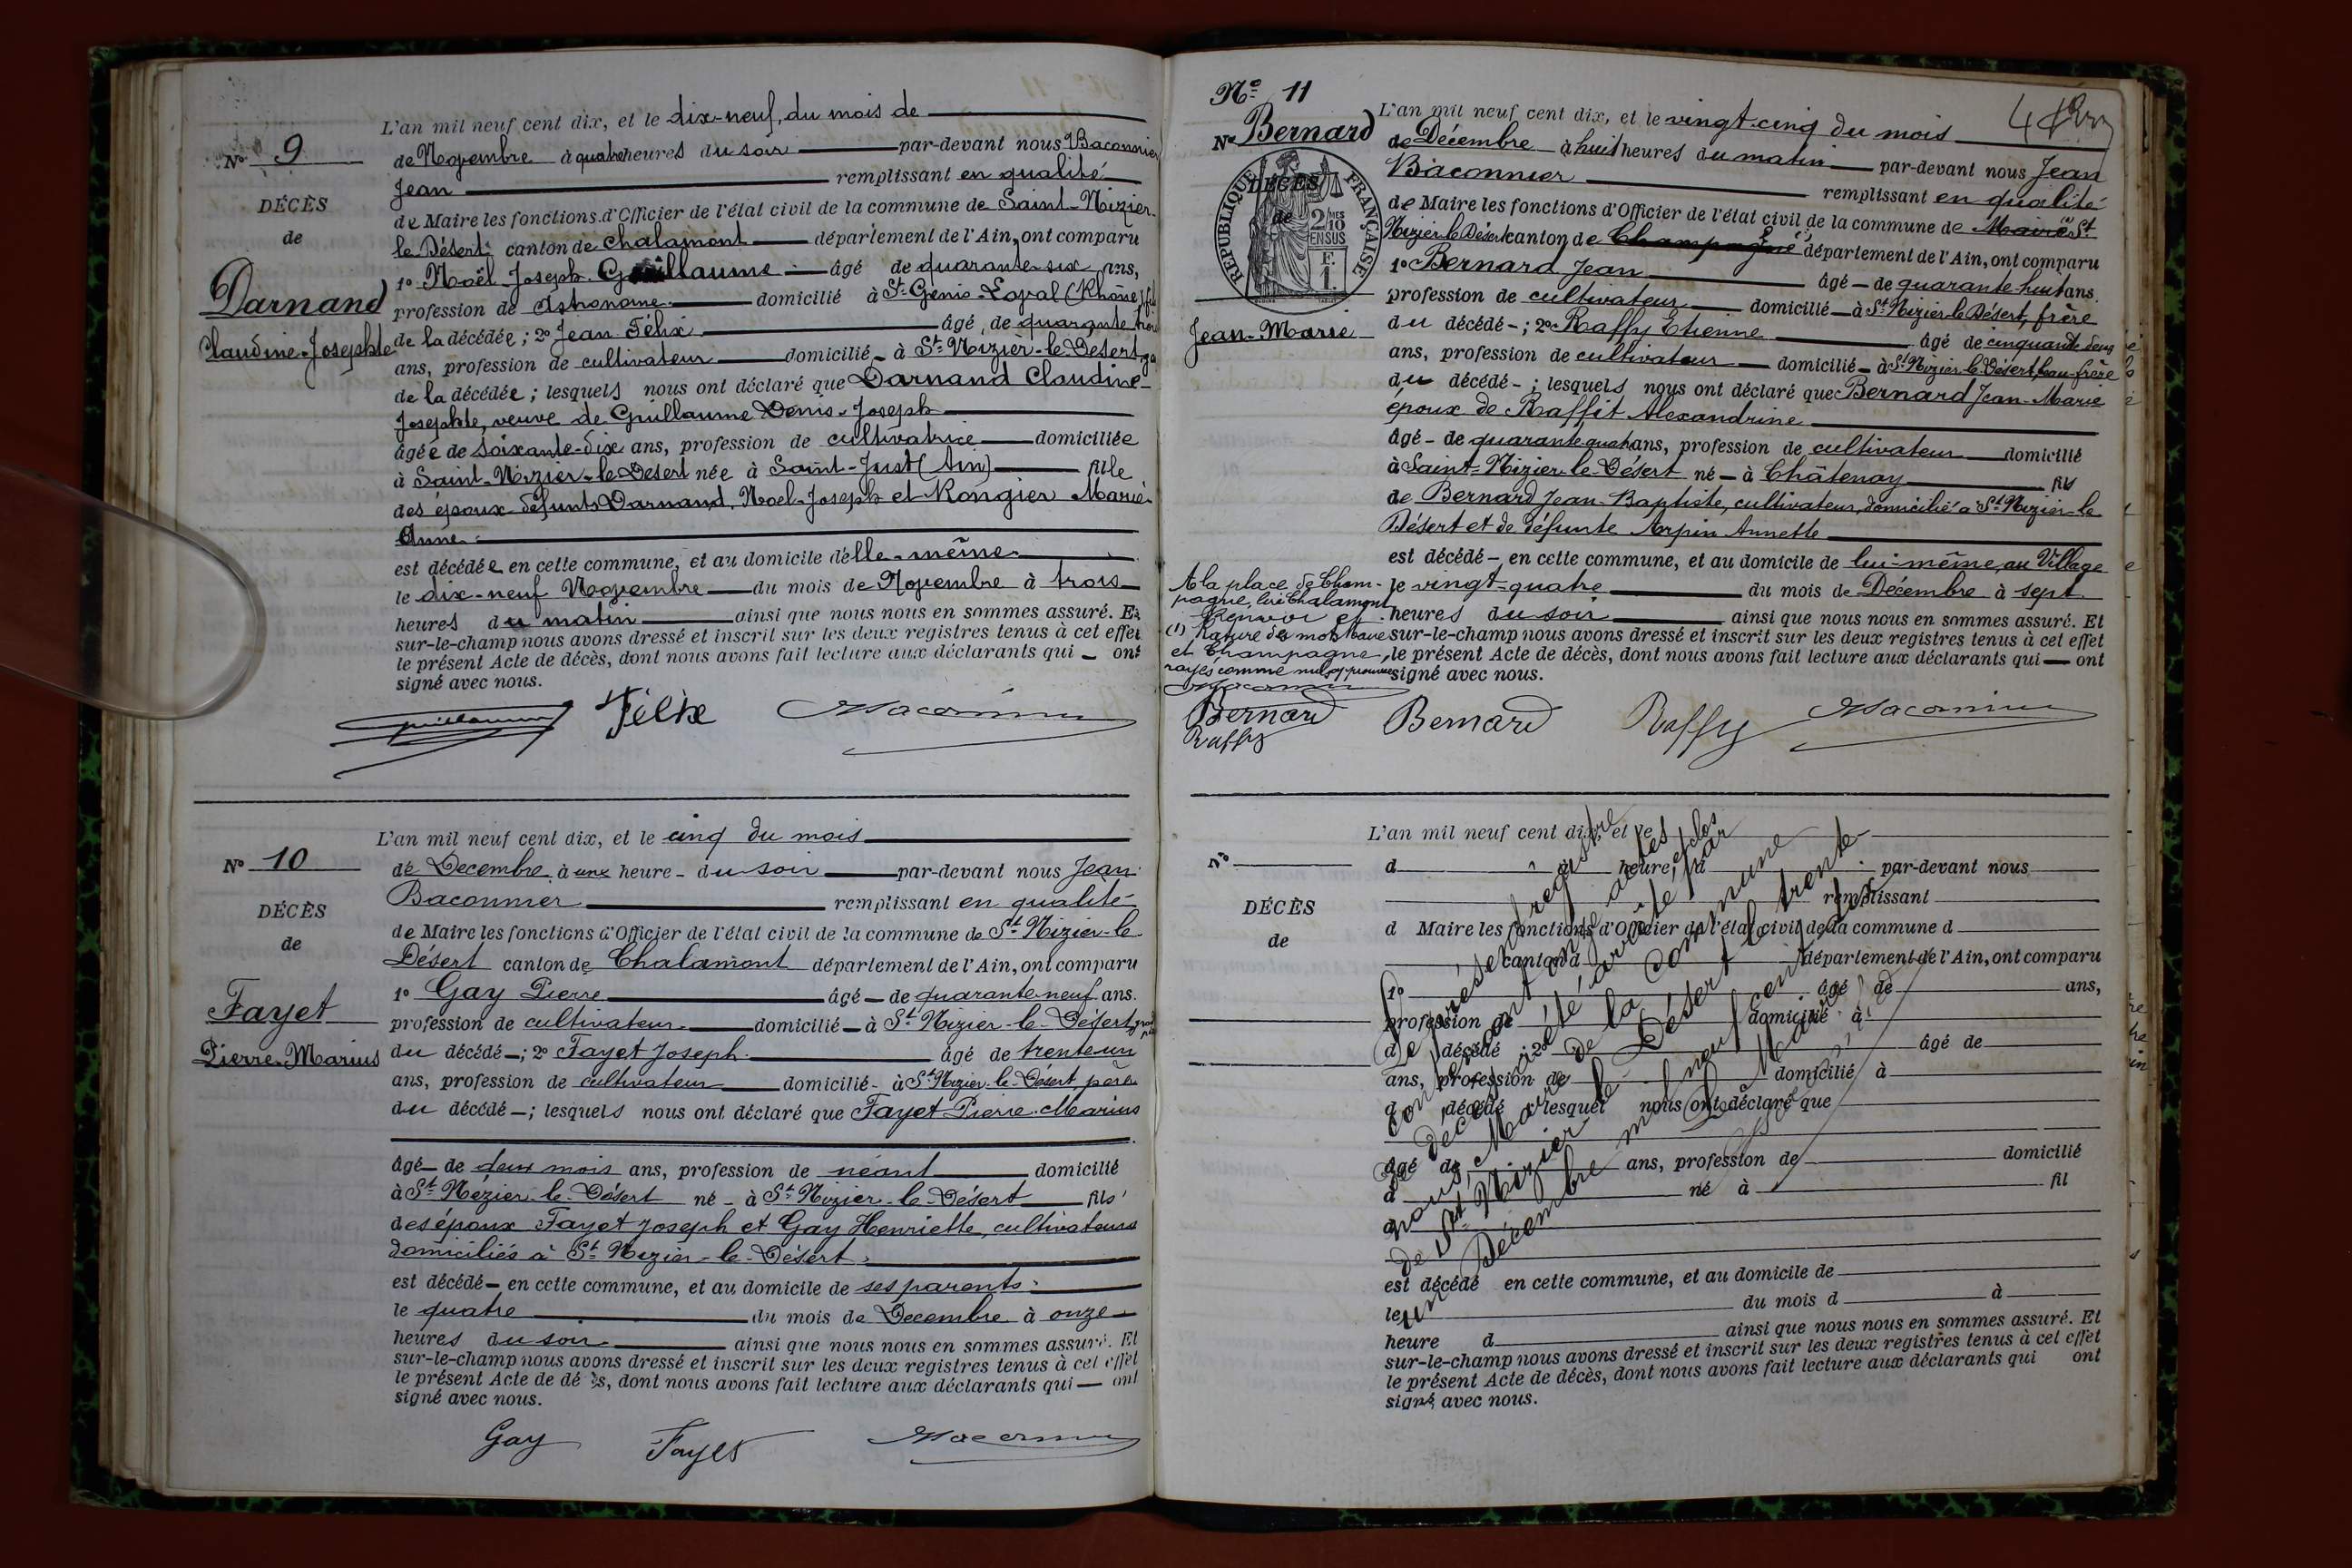 L'an mil neuf cent dix, et le dix-neuf, du mois de
N° 9
de Novembre à quatre heures du soir par-devant nous Baconnier
Jean remplissant en qualité
DÉCÈS
de Maire les fonctions d'Officier de l'état civil de la commune de Saint-Nizier-
de
le-Désert canton de Chalamont département de l'Ain, ont comparu
1° Noël Joseph Guillaume âgé de quarante-six ans,
Darnand
profession de Astronome domicilié à St Genis-Laval (Rhône) fils
Claudine-Josephte
de la décédée ; 2° Jean Félix âgé, de quarante trois
ans, profession de cultivateur domicilié à St Nizier-le-Désert
de la décédée ; lesquels nous ont déclaré que Darnand Claudine-
Josephte, veuve de Guillaume Denis-Joseph
âgée de soixante-dix ans, profession de cultivatrice domiciliée
à Saint-Nizier-le-Désert née à Saint-Just (Ain) fille
des époux défunts Darnand, Noel-Joseph et Rongier Marie-
Anne
est décédée en cette commune, et au domicile d'elle-même
le dix-neuf Novembre du mois de Novembre à trois
heures du matin ainsi que nous nous en sommes assuré. Et
sur-le-champ nous avons dressé et inscrit sur les deux registres tenus à cet effet
le présent Acte de décès, dont nous avons fait lecture aux déclarants qui — ont
signé avec nous.
Guillaume Félix Baconnier
L'an mil neuf cent dix, et le cinq du mois
N° 10
de Decembre à une heure - du soir par-devant nous Jean
Baconnier remplissant en qualité
DÉCÈS
de Maire les fonctions d'Officier de l'état civil de la commune de St Nizier-le
de
Désert canton de Chalamont département de l'Ain, ont comparu
1° Gay Pierre âgé — de quarante neuf ans.
Fayet
profession de cultivateur domicilié — à St Nizier-le-Désert
Pierre-Marius
du décédé — ; 2° Fayet Joseph âgé de trente un
ans, profession de cultivateur domicilié - à St Nizier-le-Désert père
du décédé — ; lesquels nous ont déclaré que Fayet Pierre-Marius
âgé — de deux mois ans, profession de néant domicilié
à St Nizier-le-Désert né - à St Nizier-le-Désert fils
des époux Fayet Joseph et Gay Henriette, cultivateurs
domiciliés à St Nizier-le-Désert
est décédé — en cette commune, et au domicile de ses parents
le quatre du mois de Decembre à onze
heures du soir ainsi que nous nous en sommes assuré. Et
sur-le-champ nous avons dressé et inscrit sur les deux registres tenus à cet effet
le présent Acte de décès, dont nous avons fait lecture aux déclarants qui — ont
signé avec nous.
Gay Fayet Baconnier
N° 11
L'an mil neuf cent dix, et le vingt-cinq du mois
N° Bernard
de Décembre à huit heures du matin par-devant nous Jean
Baconnier remplissant en qualité
DÉCÈS
de
RÉPUBLIQUE FRANÇAISE
2/10 MES
EN SUS
F. 1.
de Maire les fonctions d'Officier de l'état civil de la commune de Mairie St
Nizier le Désert canton de Champagne (1) département de l'Ain, ont comparu
1° Bernard Jean âgé — de quarante-huit ans.
profession de cultivateur domicilié — à St Nizier le Désert, frère
Jean-Marie
du décédé - ; 2° Raffy Etienne âgé de cinquante deux
ans, profession de cultivateur domicilié - à St Nizier-le-Désert, beau-frère
du décédé - ; lesquels nous ont déclaré que Bernard Jean-Marie
époux de Raffit Alexandrine
âgé - de quarante-quatre ans, profession de cultivateur domicilié
à Saint-Nizier-le-Désert né — à Châtenay fils
de Bernard Jean-Baptiste, cultivateur, domicilié à St Nizier-le
Désert et de défunte Arpin Annette
est décédé - en cette commune, et au domicile de lui-même, au Village
le vingt-quatre du mois de Décembre à sept
heures du soir ainsi que nous nous en sommes assuré. Et
sur-le-champ nous avons dressé et inscrit sur les deux registres tenus à cet effet
le présent Acte de décès, dont nous avons fait lecture aux déclarants qui — ont
signé avec nous.
A la place de Cham-
pagne, lire Chalamont
Renvoi et
(1) Rature des mots Mairie
et Champagne,
rayés comme nuls approuvés
Baconnier
Bernard
Raffy
Bernard Raffy Baconnier
L'an mil neuf cent dix, et le
N°
d à heure, d par-devant nous
remplissant
DÉCÈS
d Maire les fonctions d'Officier de l'état civil de la commune d
de
canton d département de l'Ain, ont comparu
1° âgé de ans,
profession de domicilié à
d décédé ; 2° âgé de
ans, profession de domicilié à
d décédé ; lesquel nous ont déclaré que
âgé de ans, profession de domicilié
à né à fil
d
est décédé en cette commune, et au domicile de
le du mois d à
heure d ainsi que nous nous en sommes assuré. Et
sur-le-champ nous avons dressé et inscrit sur les deux registres tenus à cet effet
le présent Acte de décès, dont nous avons fait lecture aux déclarants qui ont
signé avec nous.
Le présent registre
contenant onze actes
de décès, a été arrêté et clos par
nous, Maire de la commune
de St Nizier-le-Désert le trente
un Décembre mil neuf cent dix
Le Maire